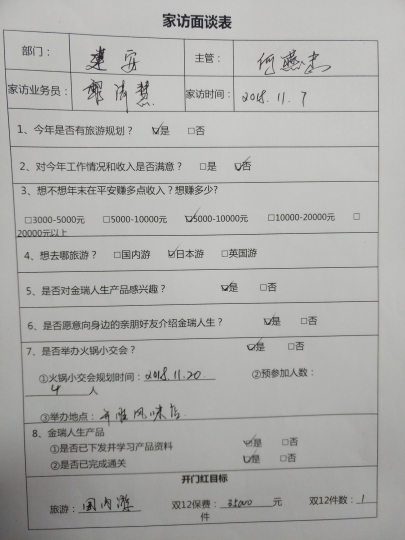 家访面谈表
部门： 建安 主管： 何燕杰
家访业务员： 郭海慧 家访时间： 2018.11.7
1、今年是否有旅游规划？ ☑是 □否
2、对今年工作情况和收入是否满意？ □是 ☑否
3、想不想年末在平安赚多点收入？想赚多少?
□3000-5000元 □5000-10000元 ☑5000-10000元 □10000-20000元 □
20000元以上
4、想去哪旅游？ □国内游 ☑日本游 □英国游
5、是否对金瑞人生产品感兴趣？ ☑是 □否
6、是否愿意向身边的亲朋好友介绍金瑞人生？ ☑是 □否
7、是否举办火锅小交会？ ☑是 □否
①火锅小交会规划时间：2018.11.20 ②预参加人数：
4 人
③举办地点： 风味店
8、金瑞人生产品
①是否已下发并学习产品资料 ☑是 □否
②是否已完成通关 ☑是 □否
开门红目标
旅游： 国内游 双12保费： 35000 元 双12件数： 1
件